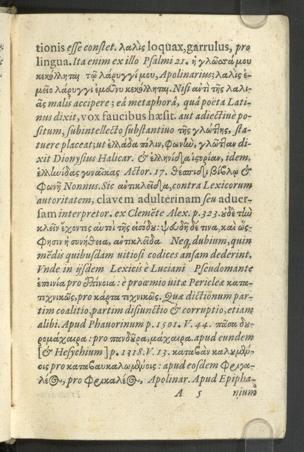 tionis esse constet. λαλὶς loquax, garrulus, pro
lingua. Ita enim ex illo Psalmi 21. ἡ γλῶσσά μου
κεκόλληται τῷ λάρυγγί μου, Apolinarius; λαλὶς ἐ-
μείο λάρυγγι κεκόλληται. Nisi αὐτὶ τῆς λαλι-
ᾶς malis accipere; ea metaphorâ, quâ poëta Lati-
nus dixit, vox faucibus hæsit. aut adiectivè po-
situm, subintellecto substantivo τῆς γλώττης, sta-
tuere placeat: ut ἑλλάδα πόλιν, φωνὼ, γλῶτταν di-
xit Dionysius Halicar. & idem,
ἑλλωίδας γυναῖκας Actor. 17. &
φωνῇ Nonnus. Sic contra Lexicorum
autoritatem, clavem adulterinam seu adver-
sam interpretor. ex Clemẽte Alex. p. 323.
κλεῖν ἔχοντες αὐτὶ τῆς εἰσόδυ: ψευδῆ δέ τινα, καὶ ὡς
φησιν ἡ συνήθεια, Neq, dubium, quin
mẽdis quibusdam vitiosi codices ansam dederint.
Vnde in ijsdem Lexicis è Luciani Pseudomante
è proœmio vitæ Pericleæ κατα-
τεχνικῶς, pro κάρτα τεχνικῶς. Quæ dictionum par-
tim coalitio, partim disiunctio & corruptio, etiam
alibi. Apud Phavorinum p. 1501. V. 44. πᾶσα δυ-
ρομάχαιρα: pro πανδῦρα, μάχαιρα. apud eundem
[& Hesychium] p. 1318. V. 13.
οις pro apud eosdem
λέος, pro Apolinar. Apud Epipha-
A 5 nium